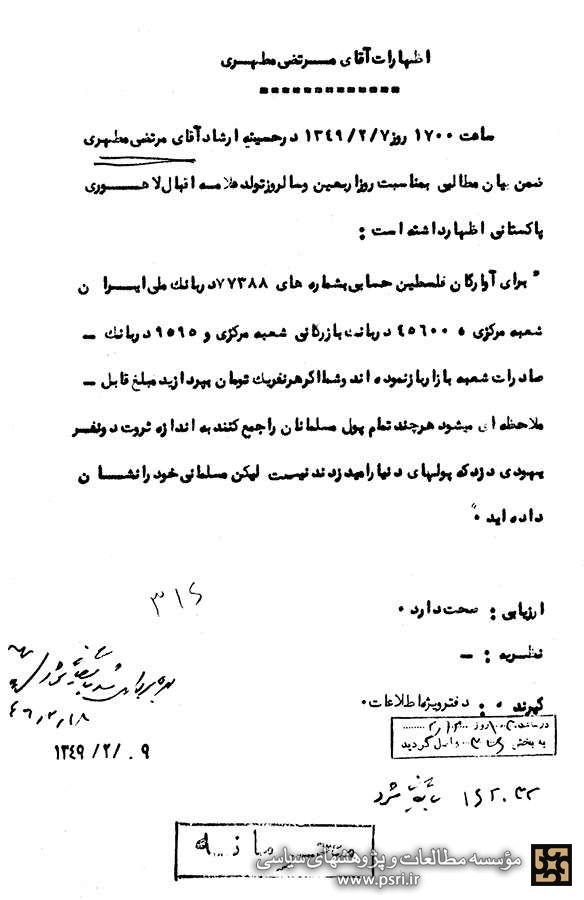 اظهارات آقای مرتضی مطهری
ساعت ۱۷۰۰ روز ۱۳۴۹/۲/۷ در حسینیه ارشاد آقای مرتضی مطهری
ضمن بیان مطالبی بمناسبت روز اربعین و سالروز تولد علامه اقبال لاهوری
پاکستانی اظهار داشته است :
" برای آوارگان فلسطین حسابی بشماره های ۷۷۳۸۸ در بانک ملی ایران
شعبه مرکزی و ۴۵۶۰۰ در بانک بازرگانی شعبه مرکزی و ۹۵۹۵ در بانک –
صادرات شعبه بازار باز نموده اند و شما اگر هر نفر یک تومان بپردازید مبلغ قابل –
ملاحظه ای میشود هر چند تمام پول مسلمانان را جمع کنند به اندازه ثروت دو نفر
یهودی دزد که پولهای دنیا را میدزدند نیست لیکن مسلمانی خود را نشان
داده اید ."
۳۱۶
ارزیابی : صحت دارد .
نظریه : –
گیرنده : دفتر ویژه اطلاعات .
در ساعت روز
به بخش ۳۱۶ واصل گردید
۱۳۴۹/۲/۰۹
بایگانی شود
محرمانه
مؤسسه مطالعات و پژوهشهای سیاسی
www.psri.ir